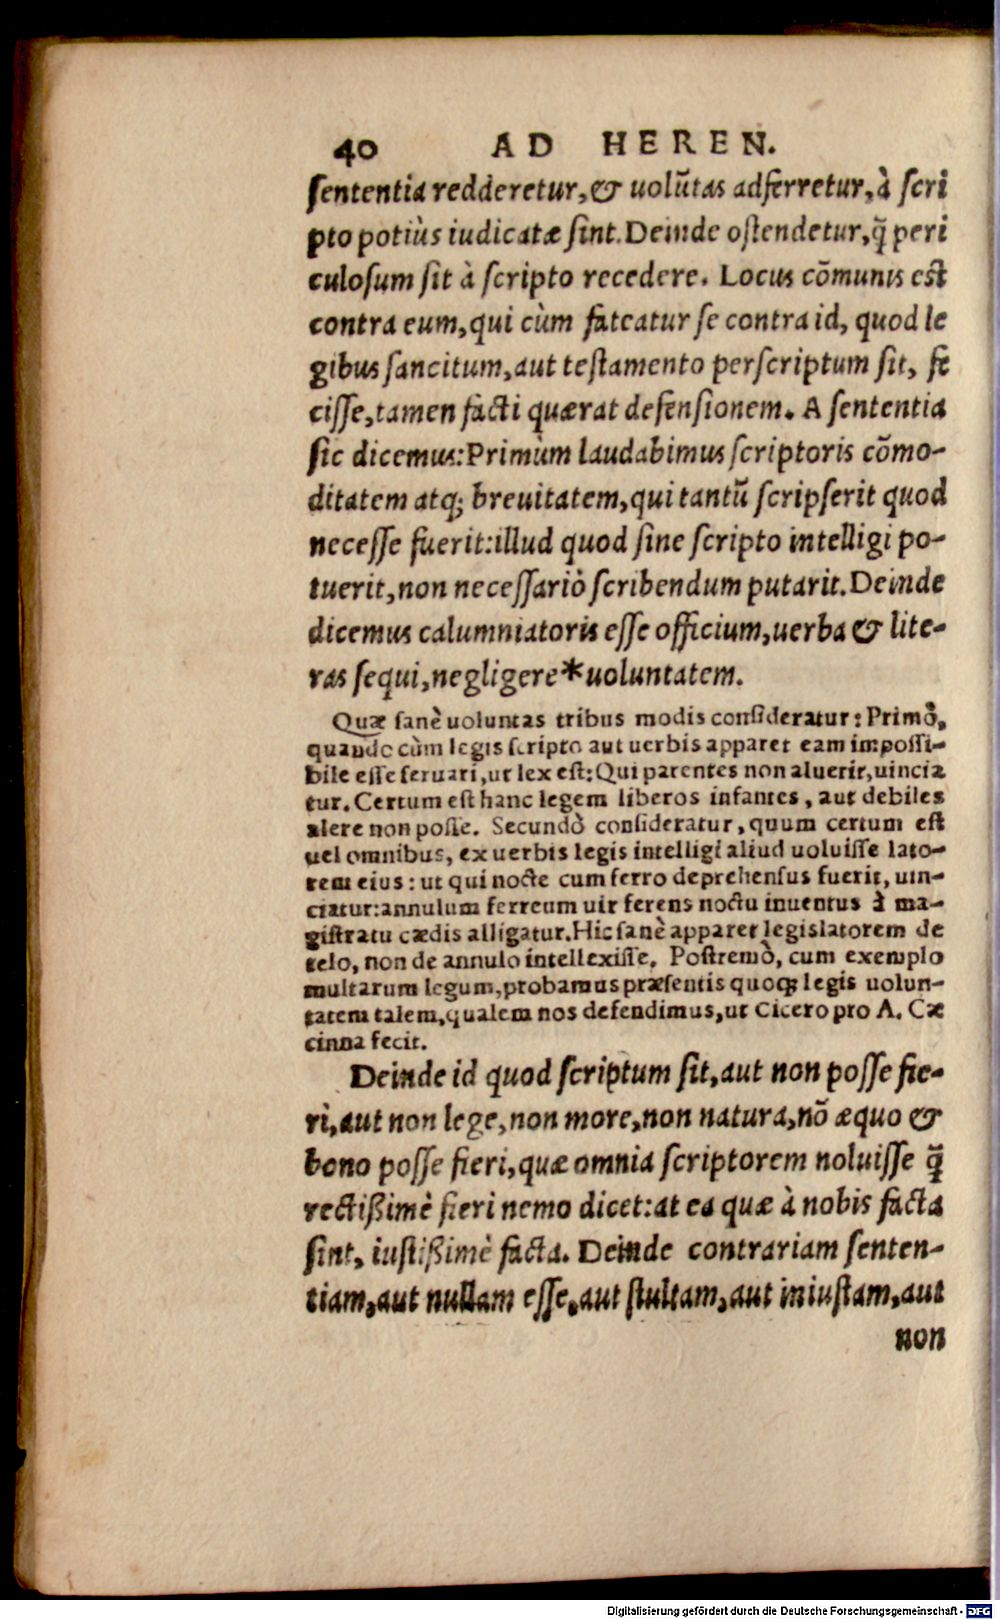 40 AD HEREN.
sententia redderetur, & uolūtas adferretur, à scri
pto potiùs iudicatæ sint. Deinde ostendetur, q̃ peri
culosum sit à scripto recedere. Locus cōmunis est
contra eum, qui cùm fateatur se contra id, quod le
gibus sancitum, aut testamento perscriptum sit, fe
cisse, tamen facti quærat defensionem. A sententia
sic dicemus: Primùm laudabimus scriptoris cōmo-
ditatem atq; breuitatem, qui tantū scripserit quod
necesse fuerit: illud quod sine scripto intelligi po-
tuerit, non necessariò scribendum putarit. Deinde
dicemus calumniatoris esse officium, uerba & lite-
ras sequi, negligere * uoluntatem.
Quæ sanè uoluntas tribus modis consideratur: Primò,
quando cùm legis scripto aut uerbis apparet eam impossi-
bile esse seruari, ut lex est: Qui parentes non aluerit, uincia
tur. Certum est hanc legem liberos infantes, aut debiles
alere non posse. Secundò consideratur, quum certum est
uel omnibus, ex uerbis legis intelligi aliud uoluisse lato-
rem eius: ut qui nocte cum ferro deprehensus fuerit, uin-
ciatur: annulum ferreum uir ferens noctu inuentus à ma-
gistratu cædis alligatur. Hic sanè apparet legislatorem de
telo, non de annulo intellexisse. Postremò, cum exemplo
multarum legum, probamus præsentis quoq; legis uolun-
tatem talem, qualem nos defendimus, ut Cicero pro A. Cæ
cinna fecit.
Deinde id quod scriptum sit, aut non posse fie-
ri, aut non lege, non more, non natura, nō æquo &
bono posse fieri, quæ omnia scriptorem noluisse q̃
rectißimè fieri nemo dicet: at ea quæ à nobis facta
sint, iustißimè facta. Deinde contrariam senten-
tiam, aut nullam esse, aut stultam, aut iniustam, aut
non
Digitalisierung gefördert durch die Deutsche Forschungsgemeinschaft - DFG